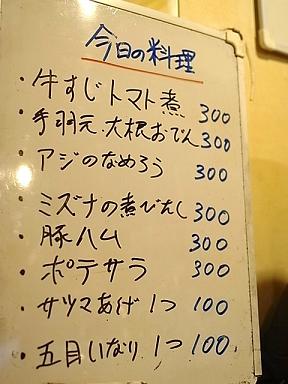 今日の料理
・牛すじトマト煮 300
・手羽元.大根おでん 300
・アジのなめろう 300
・ミズナの煮びたし 300
・豚ハム 300
・ポテサラ 300
・サツマあげ 1つ 100
・五目いなり 1つ 100